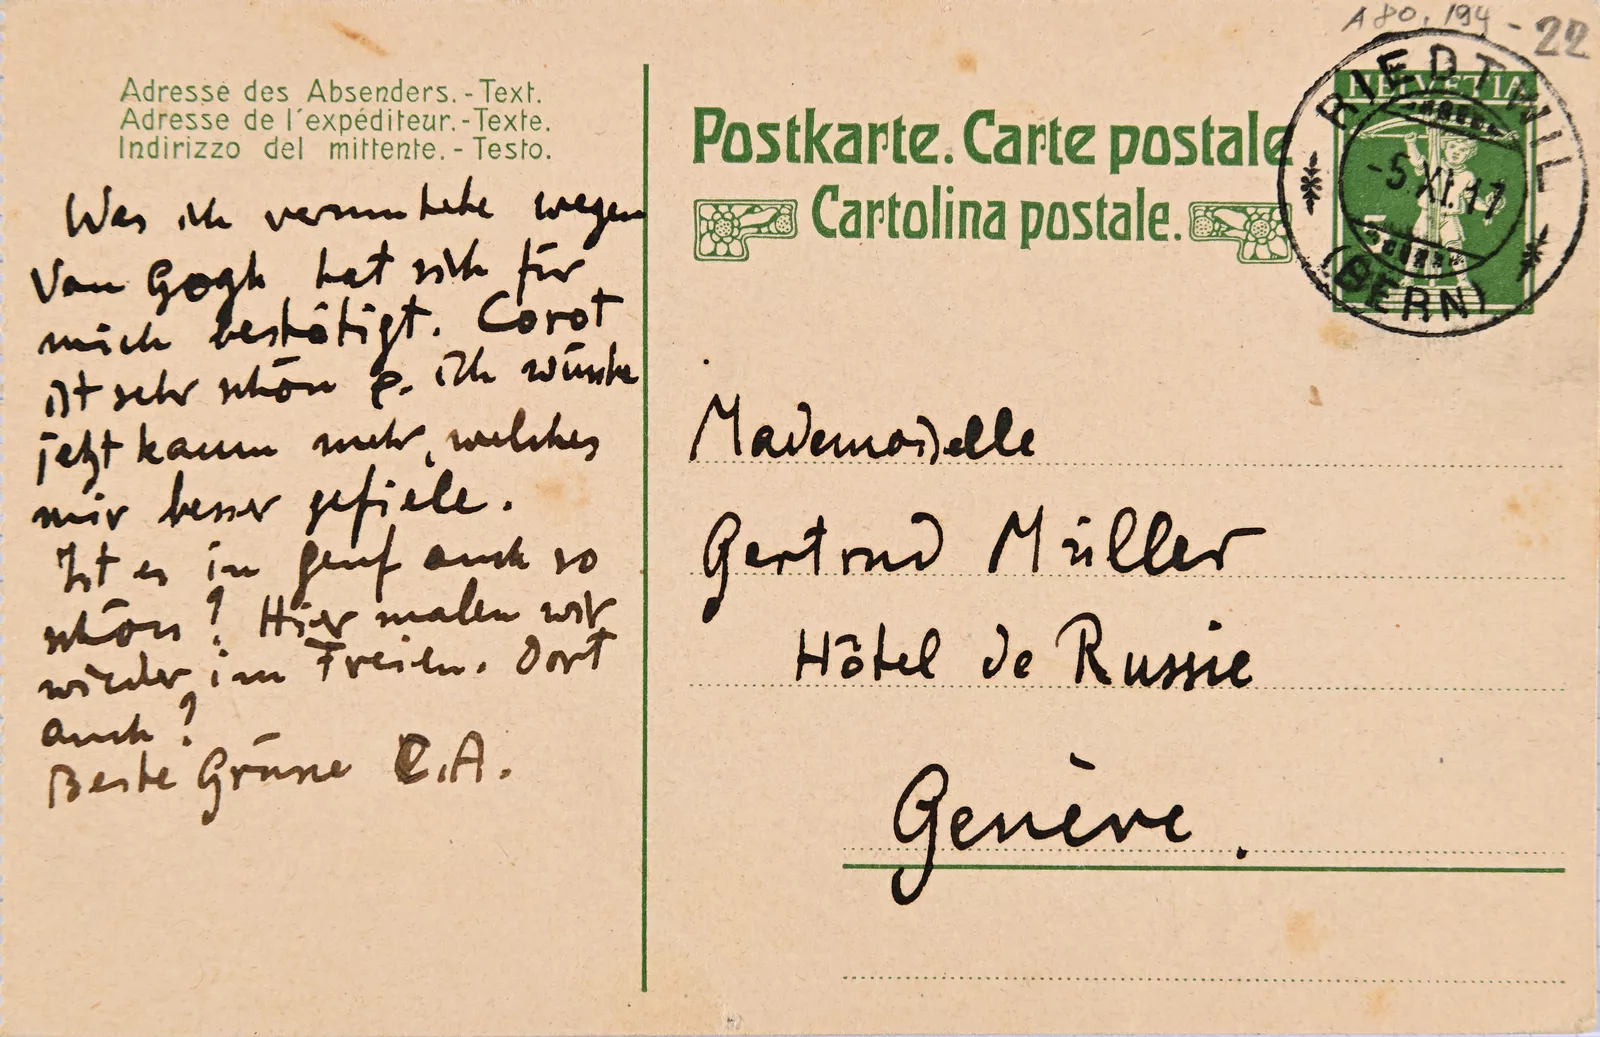 A 80, 194 - 22
Adresse des Absenders. - Text.
Adresse de l'expéditeur. - Texte.
Indirizzo del mittente. - Testo.
Postkarte. Carte postale
Cartolina postale.
HELVETIA
5
RIEDTWIL
-5.XI.17
(BERN)
Was ich vermutete wegen
Van Gogh hat sich für
mich bestätigt. Corot
ist sehr schön u. ich wüsste
jetzt kaum mehr, welches
mir besser gefiele.
Ist es in Genf auch so
schön? Hier malen wir
wieder im Freien. Dort
auch?
Beste Grüsse C.A.
Mademoiselle
Gertrud Müller
Hôtel de Russie
Genève.